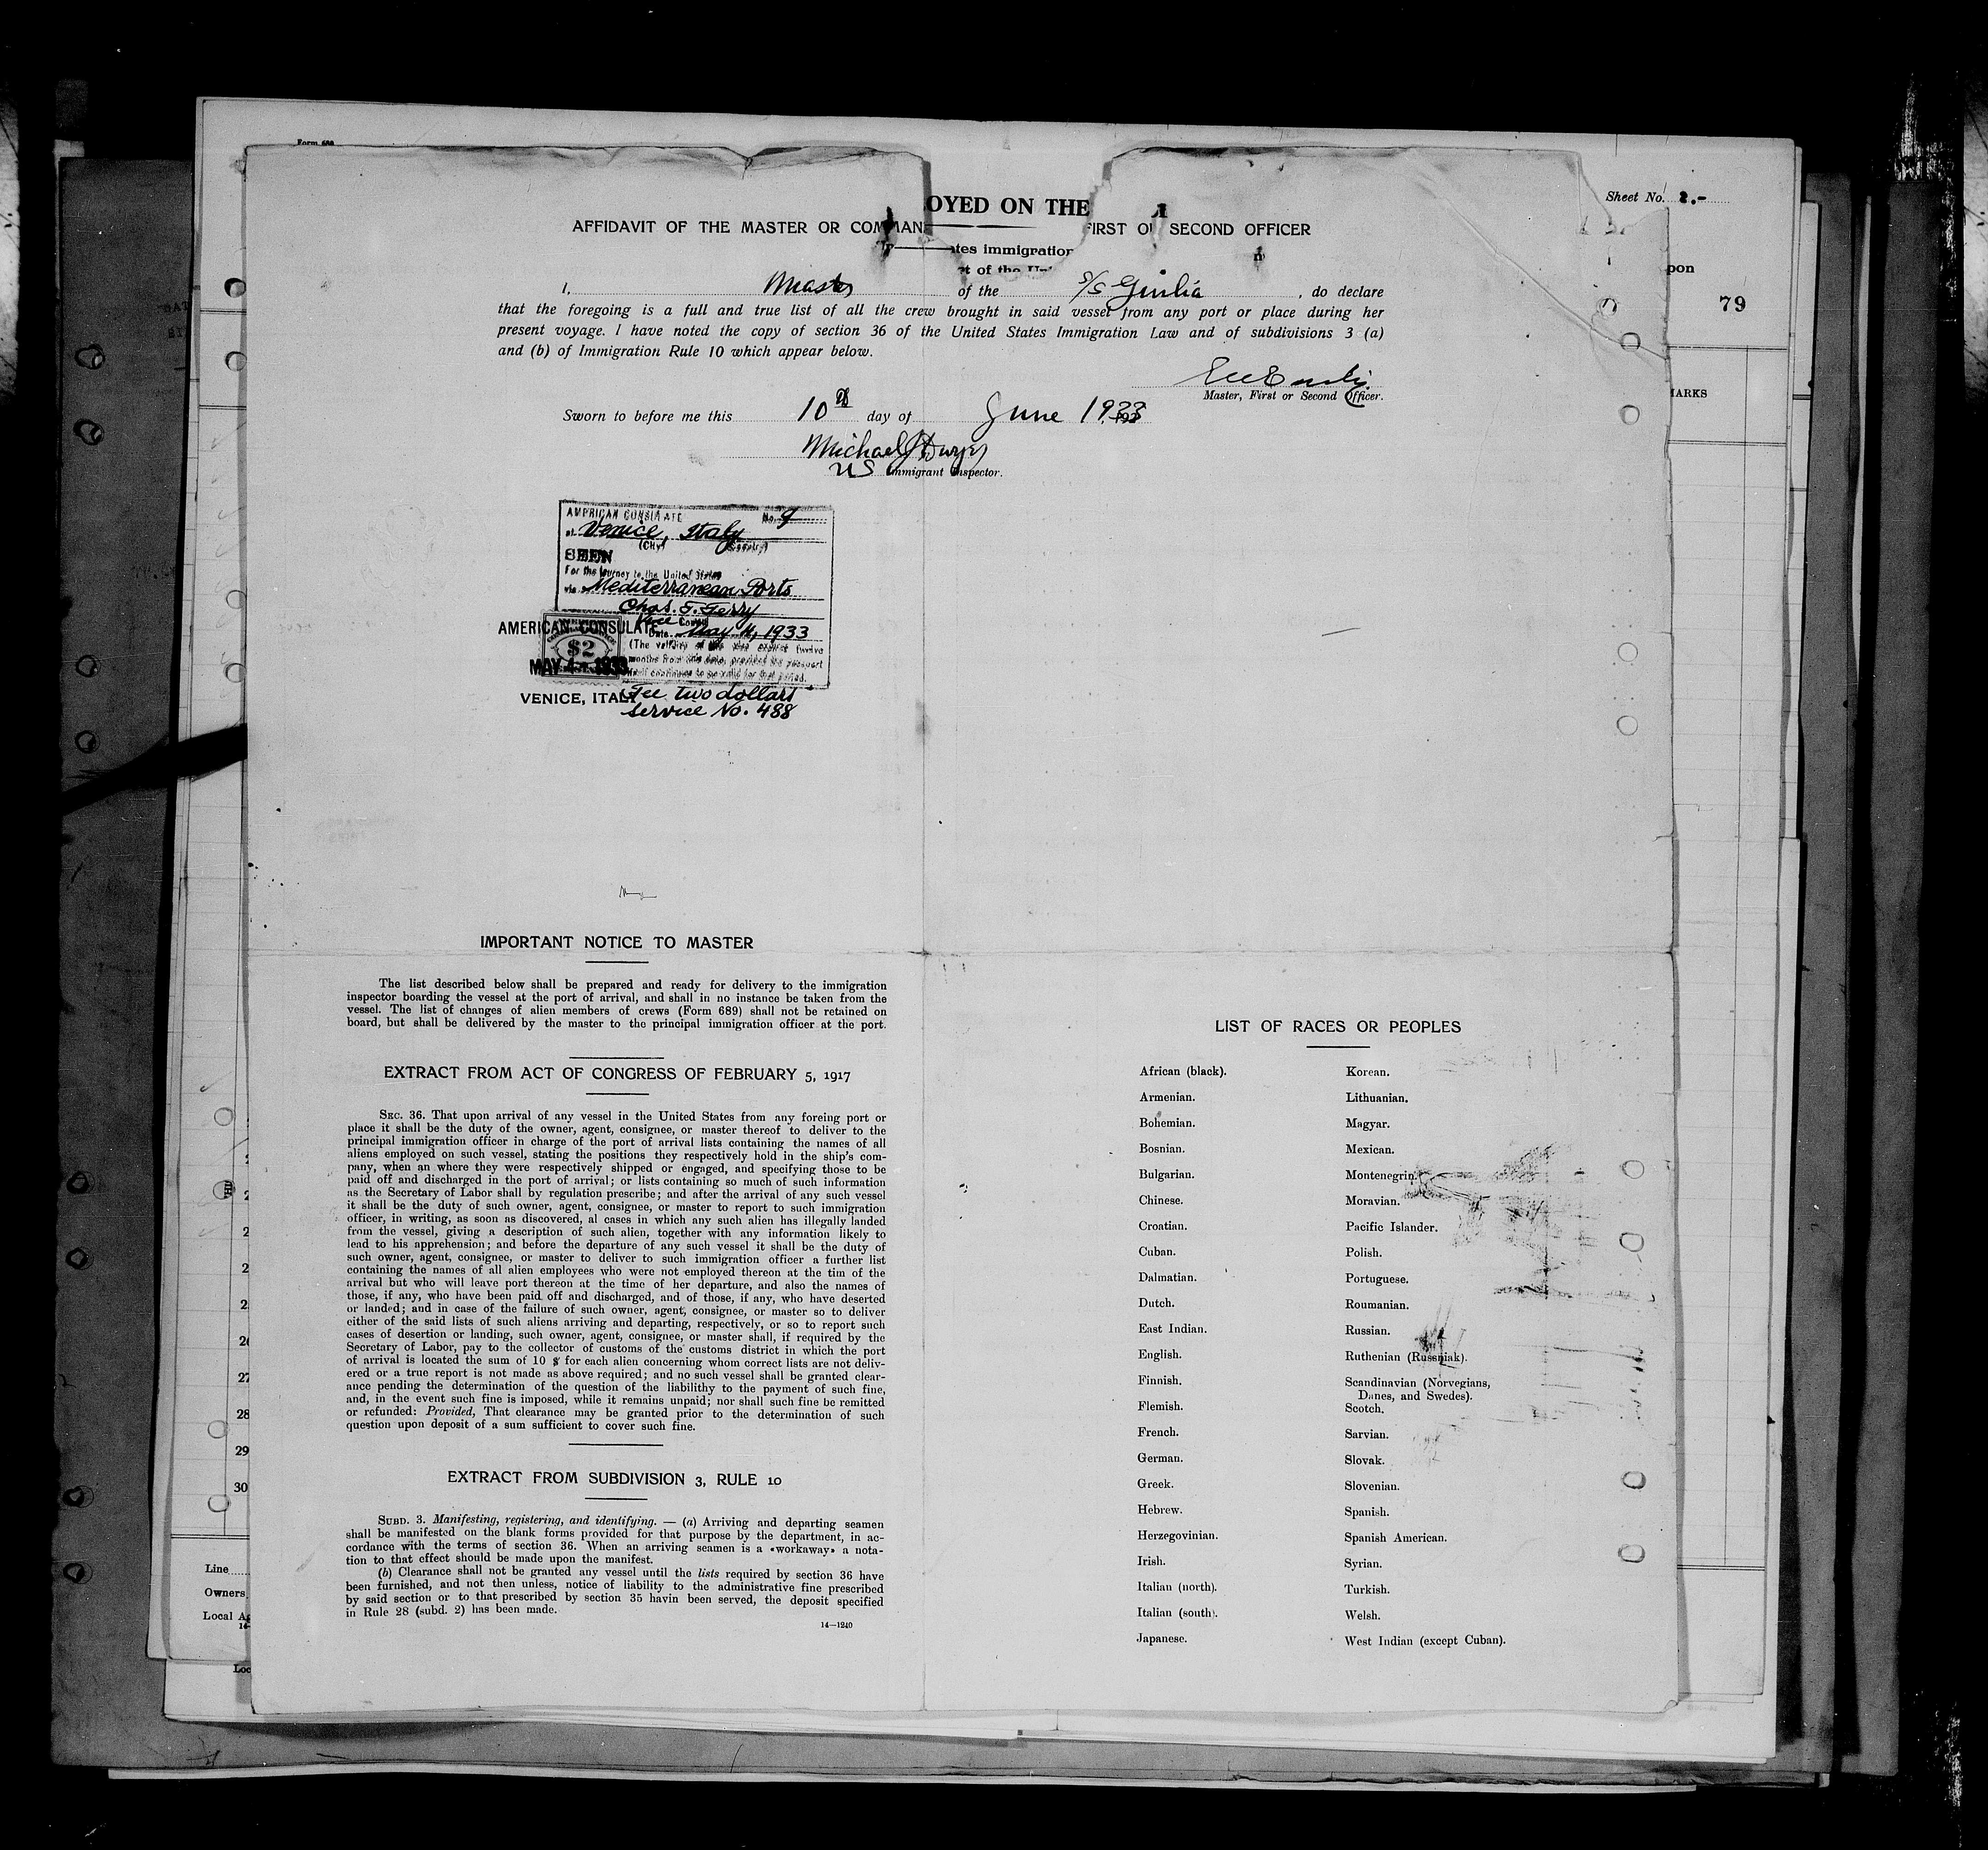 Form 689
Sheet No. 2.-
OYED ON THE
AFFIDAVIT OF THE MASTER OR COMMAN FIRST OR SECOND OFFICER
tes immigration
t of the Un
pon
79
MARKS
I, Master of the S/S Giulia, do declare
that the foregoing is a full and true list of all the crew brought in said vessel from any port or place during her
present voyage. I have noted the copy of section 36 of the United States Immigration Law and of subdivisions 3 (a)
and (b) of Immigration Rule 10 which appear below.
Master, First or Second Officer.
Sworn to before me this 10th day of June 1933
Michael J Dwyer
US Immigrant Inspector.
AMERICAN CONSULATE No. 9
at Venice, Italy
(City) (Country)
SEEN
For the journey to the United States
via Mediterranean Ports
Chas. F. Gerry
Vice Consul
Date May 4, 1933
(The validity of this visa expires twelve
months from this date, provided the passport
itself continues to be valid for that period.
AMERICAN CONSULATE
$2
MAY 4 - 1933
VENICE, ITALY
Fee two dollars
Service No. 488
IMPORTANT NOTICE TO MASTER
The list described below shall be prepared and ready for delivery to the immigration
inspector boarding the vessel at the port of arrival, and shall in no instance be taken from the
vessel. The list of changes of alien members of crews (Form 689) shall not be retained on
board, but shall be delivered by the master to the principal immigration officer at the port.
EXTRACT FROM ACT OF CONGRESS OF FEBRUARY 5, 1917
SEC. 36. That upon arrival of any vessel in the United States from any foreing port or
place it shall be the duty of the owner, agent, consignee, or master thereof to deliver to the
principal immigration officer in charge of the port of arrival lists containing the names of all
aliens employed on such vessel, stating the positions they respectively hold in the ship's com-
pany, when an where they were respectively shipped or engaged, and specifying those to be
paid off and discharged in the port of arrival; or lists containing so much of such information
as the Secretary of Labor shall by regulation prescribe; and after the arrival of any such vessel
it shall be the duty of such owner, agent, consignee, or master to report to such immigration
officer, in writing, as soon as discovered, al cases in which any such alien has illegally landed
from the vessel, giving a description of such alien, together with any information likely to
lead to his apprehension; and before the departure of any such vessel it shall be the duty of
such owner, agent, consignee, or master to deliver to such immigration officer a further list
containing the names of all alien employees who were not employed thereon at the tim of the
arrival but who will leave port thereon at the time of her departure, and also the names of
those, if any, who have been paid off and discharged, and of those, if any, who have deserted
or landed; and in case of the failure of such owner, agent, consignee, or master so to deliver
either of the said lists of such aliens arriving and departing, respectively, or so to report such
cases of desertion or landing, such owner, agent, consignee, or master shall, if required by the
Secretary of Labor, pay to the collector of customs of the customs district in which the port
of arrival is located the sum of 10 $ for each alien concerning whom correct lists are not deliv-
ered or a true report is not made as above required; and no such vessel shall be granted clear-
ance pending the determination of the question of the liabilithy to the payment of such fine,
and, in the event such fine is imposed, while it remains unpaid; nor shall such fine be remitted
or refunded: Provided, That clearance may be granted prior to the determination of such
question upon deposit of a sum sufficient to cover such fine.
EXTRACT FROM SUBDIVISION 3, RULE 10
SUBD. 3. Manifesting, registering, and identifying. — (a) Arriving and departing seamen
shall be manifested on the blank forms provided for that purpose by the department, in ac-
cordance with the terms of section 36. When an arriving seamen is a «workaway» a nota-
tion to that effect should be made upon the manifest.
(b) Clearance shall not be granted any vessel until the lists required by section 36 have
been furnished, and not then unless, notice of liability to the administrative fine prescribed
by said section or to that prescribed by section 35 havin been served, the deposit specified
in Rule 28 (subd. 2) has been made.
14—1240
LIST OF RACES OR PEOPLES
African (black).
Armenian.
Bohemian.
Bosnian.
Bulgarian.
Chinese.
Croatian.
Cuban.
Dalmatian.
Dutch.
East Indian.
English.
Finnish.
Flemish.
French.
German.
Greek.
Hebrew.
Herzegovinian.
Irish.
Italian (north).
Italian (south).
Japanese.
Korean.
Lithuanian.
Magyar.
Mexican.
Montenegrin.
Moravian.
Pacific Islander.
Polish.
Portuguese.
Roumanian.
Russian.
Ruthenian (Russniak).
Scandinavian (Norvegians,
Danes, and Swedes).
Scotch.
Sarvian.
Slovak.
Slovenian.
Spanish.
Spanish American.
Syrian.
Turkish.
Welsh.
West Indian (except Cuban).
27
28
29
30
Line
Owners
Local Ag
14-
Loc